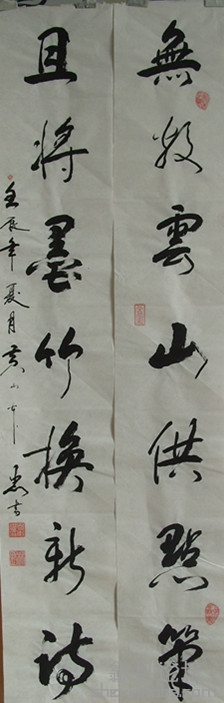 無數雲山供點筆
且將墨竹換新詩
壬辰年夏月黃山